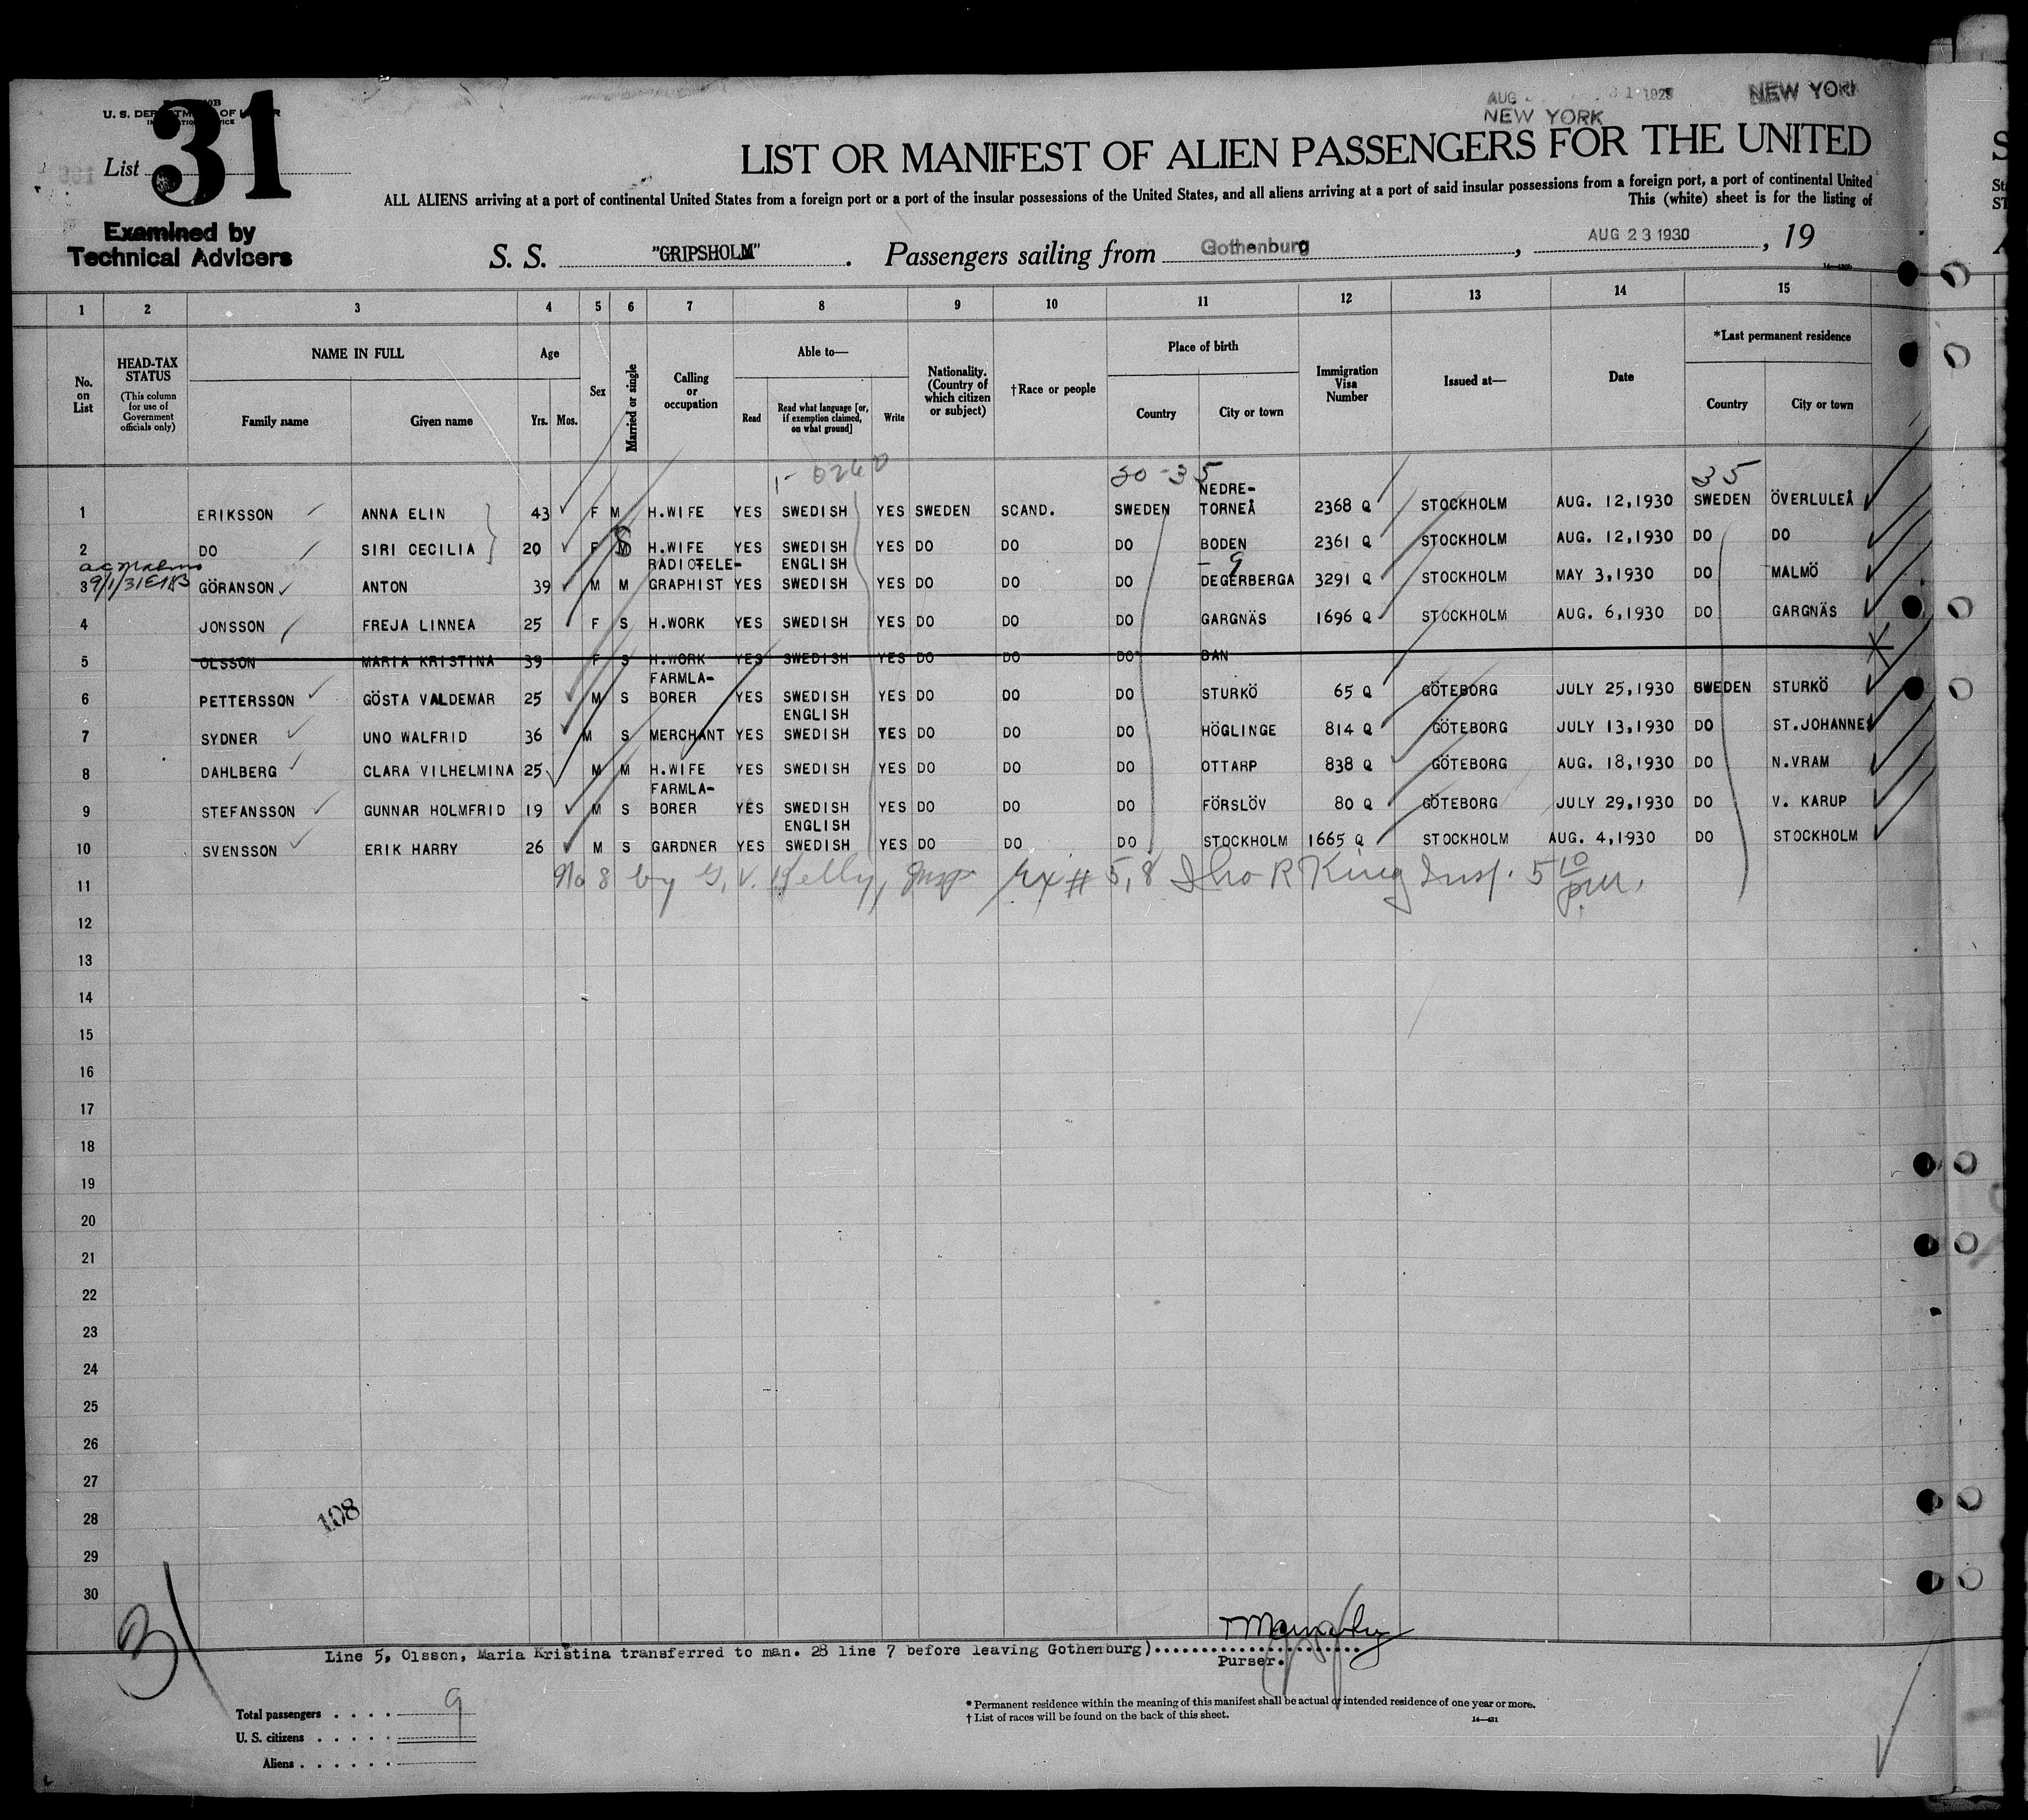 U. S. DEPARTMENT OF LABOR
List 31
Examined by
Technical Advisers
AUG
NEW YORK
NEW YORK
LIST OR MANIFEST OF ALIEN PASSENGERS FOR THE UNITED
ALL ALIENS arriving at a port of continental United States from a foreign port or a port of the insular possessions of the United States, and all aliens arriving at a port of said insular possessions from a foreign port, a port of continental United
This (white) sheet is for the listing of
S. S. "GRIPSHOLM". Passengers sailing from Gothenburg, AUG 23 1930, 19
1 2 3 4 5 6 7 8 9 10 11 12 13 14 15
No. on List
HEAD-TAX STATUS
(This column for use of Government officials only)
NAME IN FULL
Family name Given name
Age
Yrs. Mos.
Sex
Married or single
Calling or occupation
Able to—
Read Read what language [or, if exemption claimed, on what ground] Write
Nationality. (Country of which citizen or subject)
†Race or people
Place of birth
Country City or town
Immigration Visa Number
Issued at—
Date
*Last permanent residence
Country City or town
1- 0260 30-35 35
1 ERIKSSON ANNA ELIN 43 F M H.WIFE YES SWEDISH YES SWEDEN SCAND. SWEDEN NEDRE-TORNEÅ 2368 Q STOCKHOLM AUG. 12,1930 SWEDEN ÖVERLULEÅ
2 DO SIRI CECILIA 20 F M S H.WIFE YES SWEDISH YES DO DO DO BODEN 2361 Q STOCKHOLM AUG. 12,1930 DO DO
9/1/31
3 GÖRANSON ANTON 39 M M RADIOTELE-GRAPHIST YES ENGLISH SWEDISH YES DO DO DO DEGERBERGA 3291 Q STOCKHOLM MAY 3,1930 DO MALMÖ
4 JONSSON FREJA LINNEA 25 F S H.WORK YES SWEDISH YES DO DO DO GARGNÄS 1696 Q STOCKHOLM AUG. 6,1930 DO GARGNÄS
5 OLSSON MARIA KRISTINA 39 F S H.WORK YES SWEDISH YES DO DO DO BAN
6 PETTERSSON GÖSTA VALDEMAR 25 M S FARMLA-BORER YES SWEDISH YES DO DO DO STURKÖ 65 Q GÖTEBORG JULY 25,1930 SWEDEN STURKÖ
7 SYDNER UNO WALFRID 36 M S MERCHANT YES ENGLISH SWEDISH YES DO DO DO HÖGLINGE 814 Q GÖTEBORG JULY 13,1930 DO ST.JOHANNES
8 DAHLBERG CLARA VILHELMINA 25 M M H.WIFE YES SWEDISH YES DO DO DO OTTARP 838 Q GÖTEBORG AUG. 18,1930 DO N.VRAM
9 STEFANSSON GUNNAR HOLMFRID 19 M S FARMLA-BORER YES SWEDISH YES DO DO DO FÖRSLÖV 80 Q GÖTEBORG JULY 29,1930 DO V. KARUP
10 SVENSSON ERIK HARRY 26 M S GARDNER YES ENGLISH SWEDISH YES DO DO DO STOCKHOLM 1665 Q STOCKHOLM AUG. 4,1930 DO STOCKHOLM
No 8 by G. V. Kelly, Insp Ex # 5, 8 Tho R King Insp. 5 10 pm.
11
12
13
14
15
16
17
18
19
20
21
22
23
24
25
26
27
28
29
30
108
31
Line 5, Olsson, Maria Kristina transferred to man. 28 line 7 before leaving Gothenburg)
Purser.
Total passengers 9
U. S. citizens
Aliens
* Permanent residence within the meaning of this manifest shall be actual or intended residence of one year or more.
† List of races will be found on the back of this sheet.
14—431